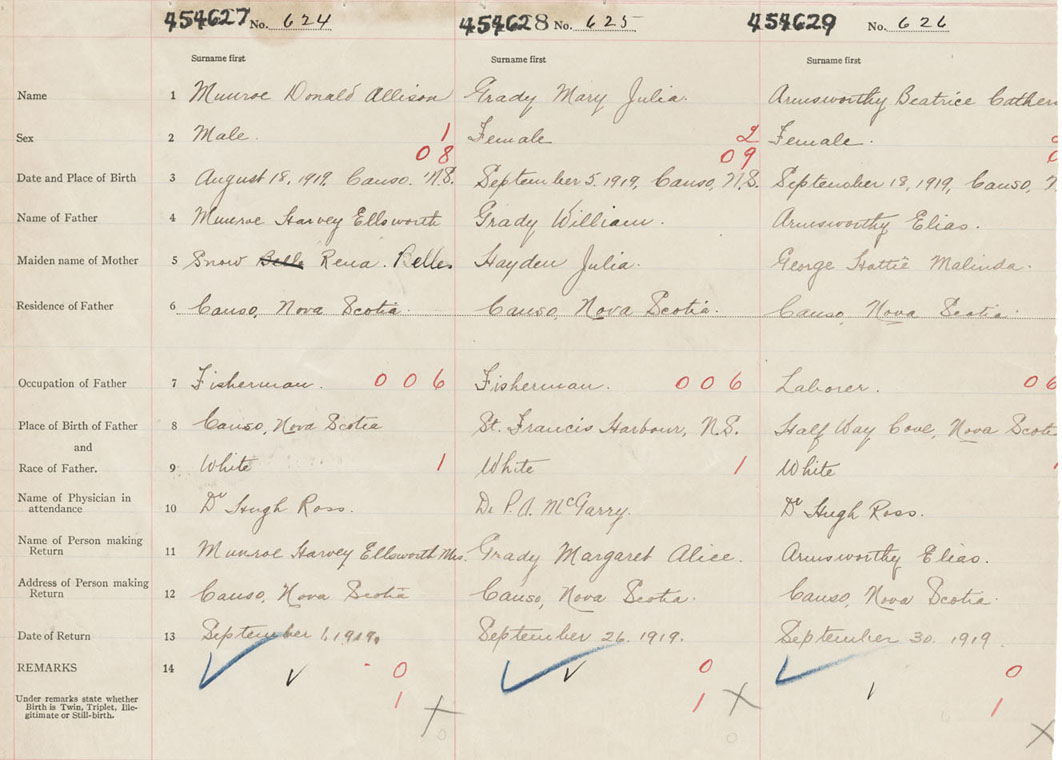 454627 No. 624 454628 No. 625 454629 No. 626
Surname first Surname first Surname first
Name 1 Munroe Donald Allison Grady Mary Julia. Armsworthy Beatrice Cather
Sex 2 Male. 1 Female 2 Female.
08 09
Date and Place of Birth 3 August 18, 1919, Canso. N.S. September 5, 1919, Canso, N.S. September 18, 1919, Canso, N
Name of Father 4 Munroe Harvey Ellsworth Grady William. Armsworthy Elias.
Maiden name of Mother 5 Snow Belle Rena. Belle. Hayden Julia. George Hattie Malinda.
Residence of Father 6 Canso, Nova Scotia. Canso, Nova Scotia. Canso, Nova Scotia.
Occupation of Father 7 Fisherman. 006 Fisherman. 006 Laborer. 06
Place of Birth of Father 8 Canso, Nova Scotia St. Francis Harbour, N.S. Half Way Cove, Nova Scoti
and
Race of Father. 9 White 1 White 1 White
Name of Physician in
attendance 10 Dr Hugh Ross. Dr P.A. McGarry. Dr Hugh Ross.
Name of Person making
Return 11 Munroe Harvey Ellsworth Mrs. Grady Margaret Alice. Armsworthy Elias.
Address of Person making
Return 12 Canso, Nova Scotia Canso, Nova Scotia. Canso, Nova Scotia.
Date of Return 13 September 1, 1919. September 26. 1919. September 30. 1919
REMARKS 14 0 0 0
Under remarks state whether
Birth is Twin, Triplet, Ille-
gitimate or Still-birth. 1 X 1 X 1 X